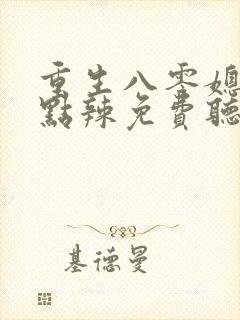 重生八零媳
點辣免費聽
基德曼